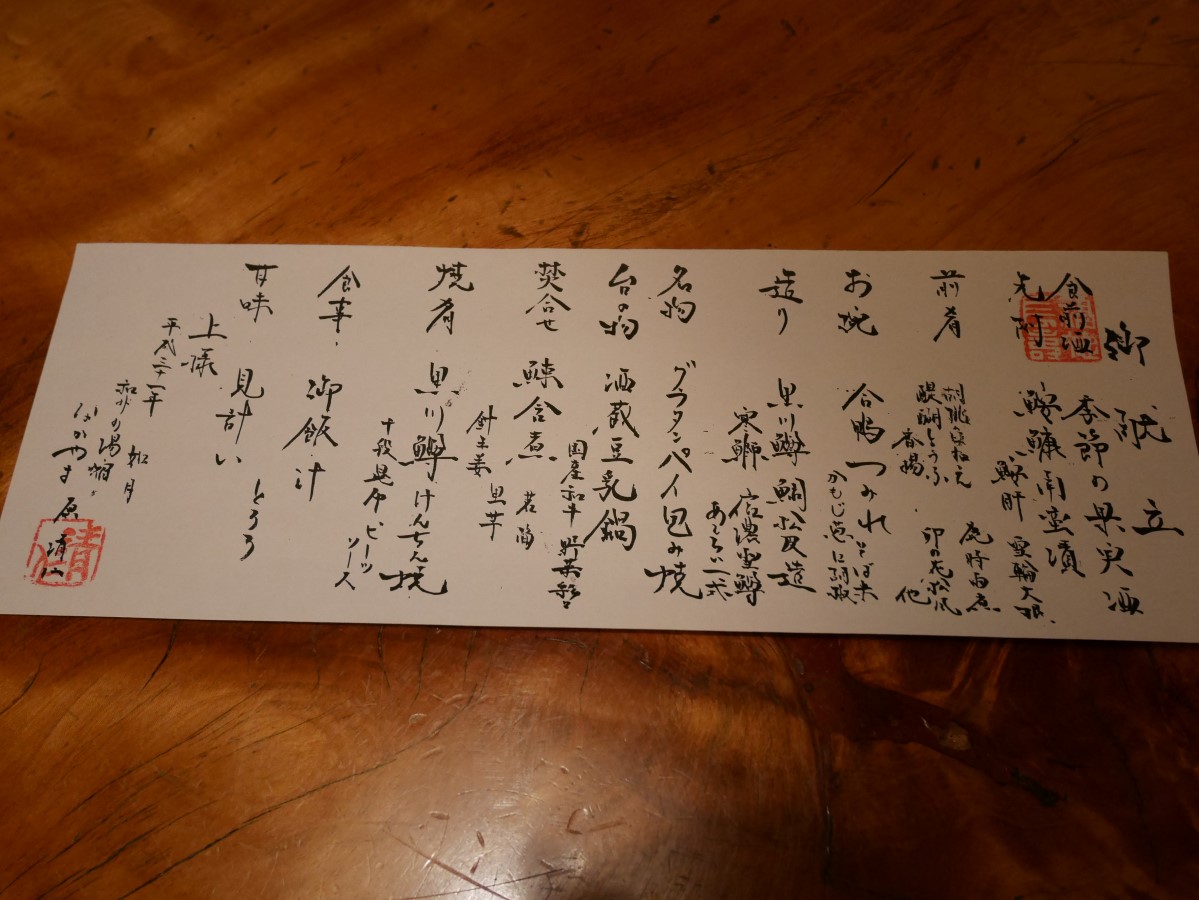 御献立
食前酒 季節の果実酒
先附 鮟鱇南蛮漬
鮟肝 雪輪大根
前肴
醍醐とうふ 卯の花
香揚 他
お椀 合鴨つみれ そば米
かもじ葱
造り 黒川鱒 鯛松皮造
寒鰤 信濃雪鱒
あしらい一式
名物 グラタンパイ包み焼
台の物 酒蔵豆乳鍋
国産和牛 野菜
焚合せ 鰊含煮 若布
針生姜 里芋
焼肴 黒川鱒けんちん焼
ビーツソース
食事 御飯 汁
とろろ
甘味 見計い
上様
平成三十一年 如月
なかやま 原 清山
清